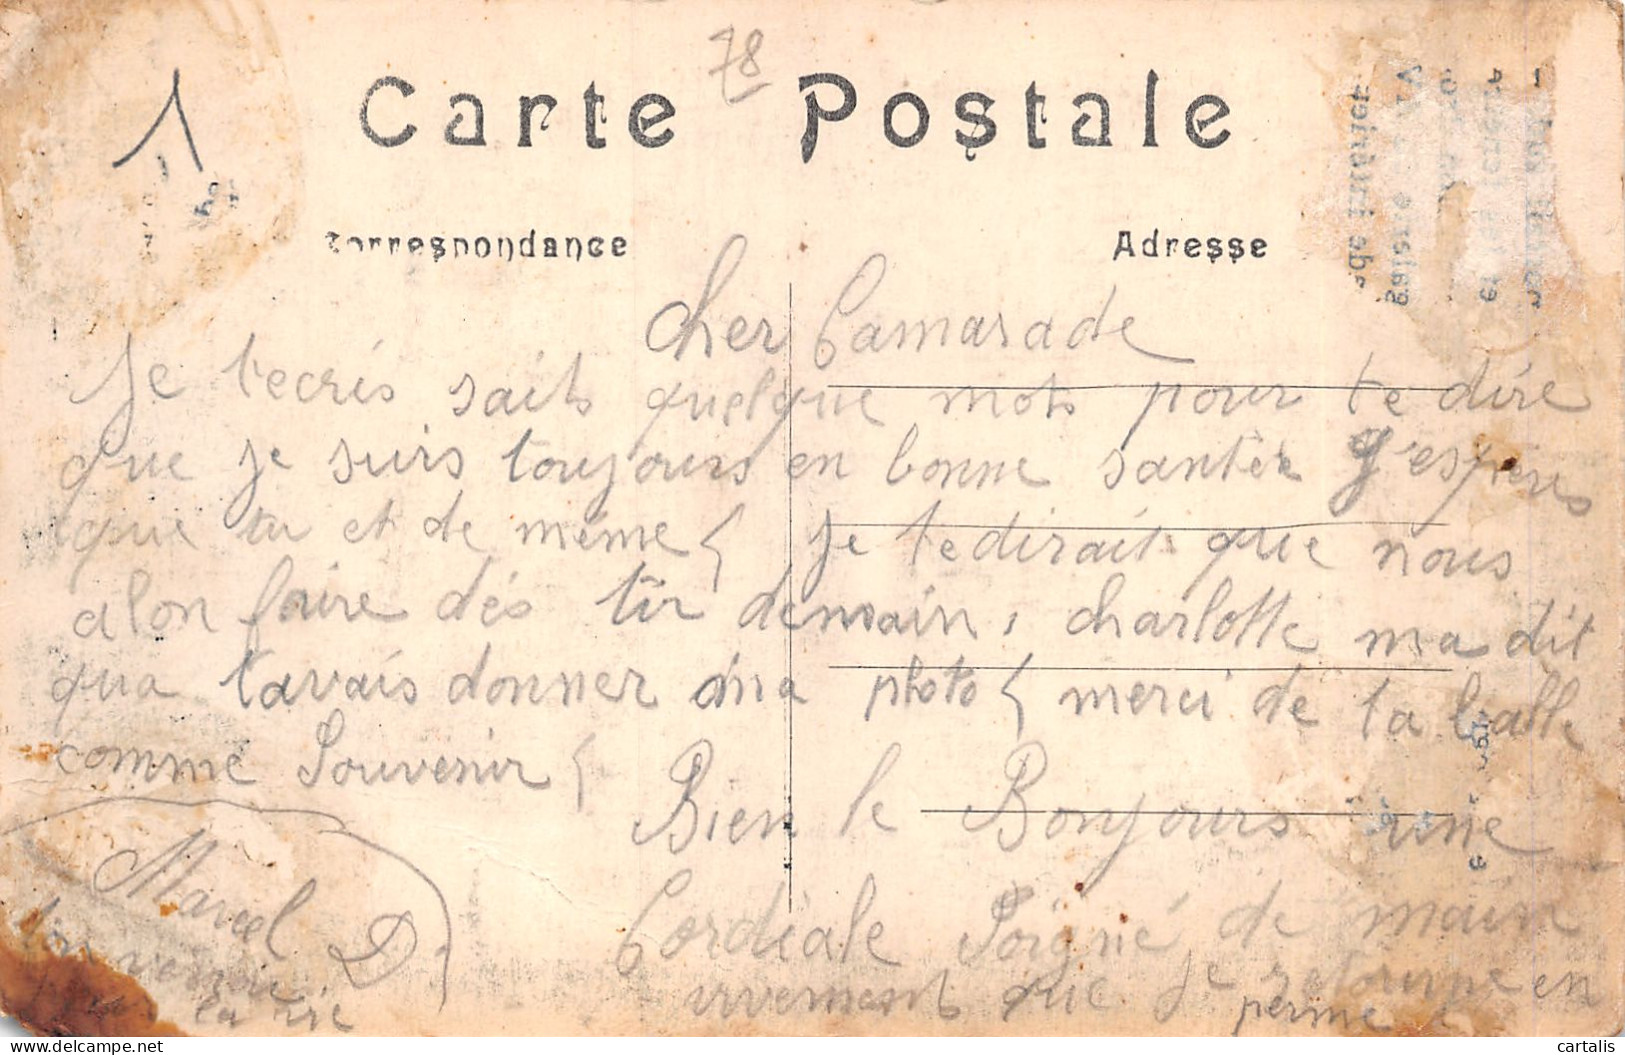 78
Carte Postale
Correspondance
Adresse
Cher Camarade
Je t'ecris saits quelque mots pour te dire
que je suis toujours en bonne santèr J'espères
que tu et de même je te dirait que nous
alon faire dés tir demain, charlotte ma dit
qua tavais donner ma photo merci de ta balle
comme Souvenir
Bien le Bonjours une
Cordiale Poigné de main
Marcel D.
vivement que je retourne en
perme
la vie
cartalis